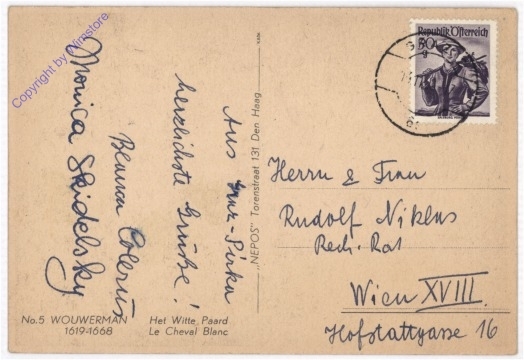 Copyright by Wimstore
Aus
herzlichste Grüße!
Monica Skidelsky
„NEPOS" Torenstraat 131 Den Haag
No.5 WOUWERMAN
1619-1668
Het Witte Paard
Le Cheval Blanc
Republik Österreich
Herrn & Frau
Rudolf Niklas
Rech. Rat
Wien XVIII.
Hofstattgasse 16